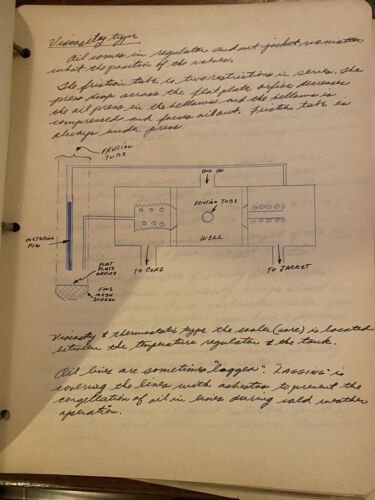 Viscosity type
Oil comes in regulator and out jacket no matter
what the position of the valves.
The friction tube is two restrictions in series. The
press drop across the flat plate orfice decreases
the oil press in the bellows and the bellows is
compressed and forces oil out. Friction tube is
always under press.
FRICTION
TUBE
OIL IN
FRICTION TUBE
METERING
PIN
WELL
TO CORE
TO JACKET
FLAT
PLATE
ORFICE
FINE
MESH
SCREEN
Viscosity & thermostatic type the cooler (core) is located
between the temperature regulator & the tank.
Oil lines are sometimes "lagged". "LAGGING" is
covering the lines with asbestos to prevent the
congellation of oil in lines during cold weather
operation.